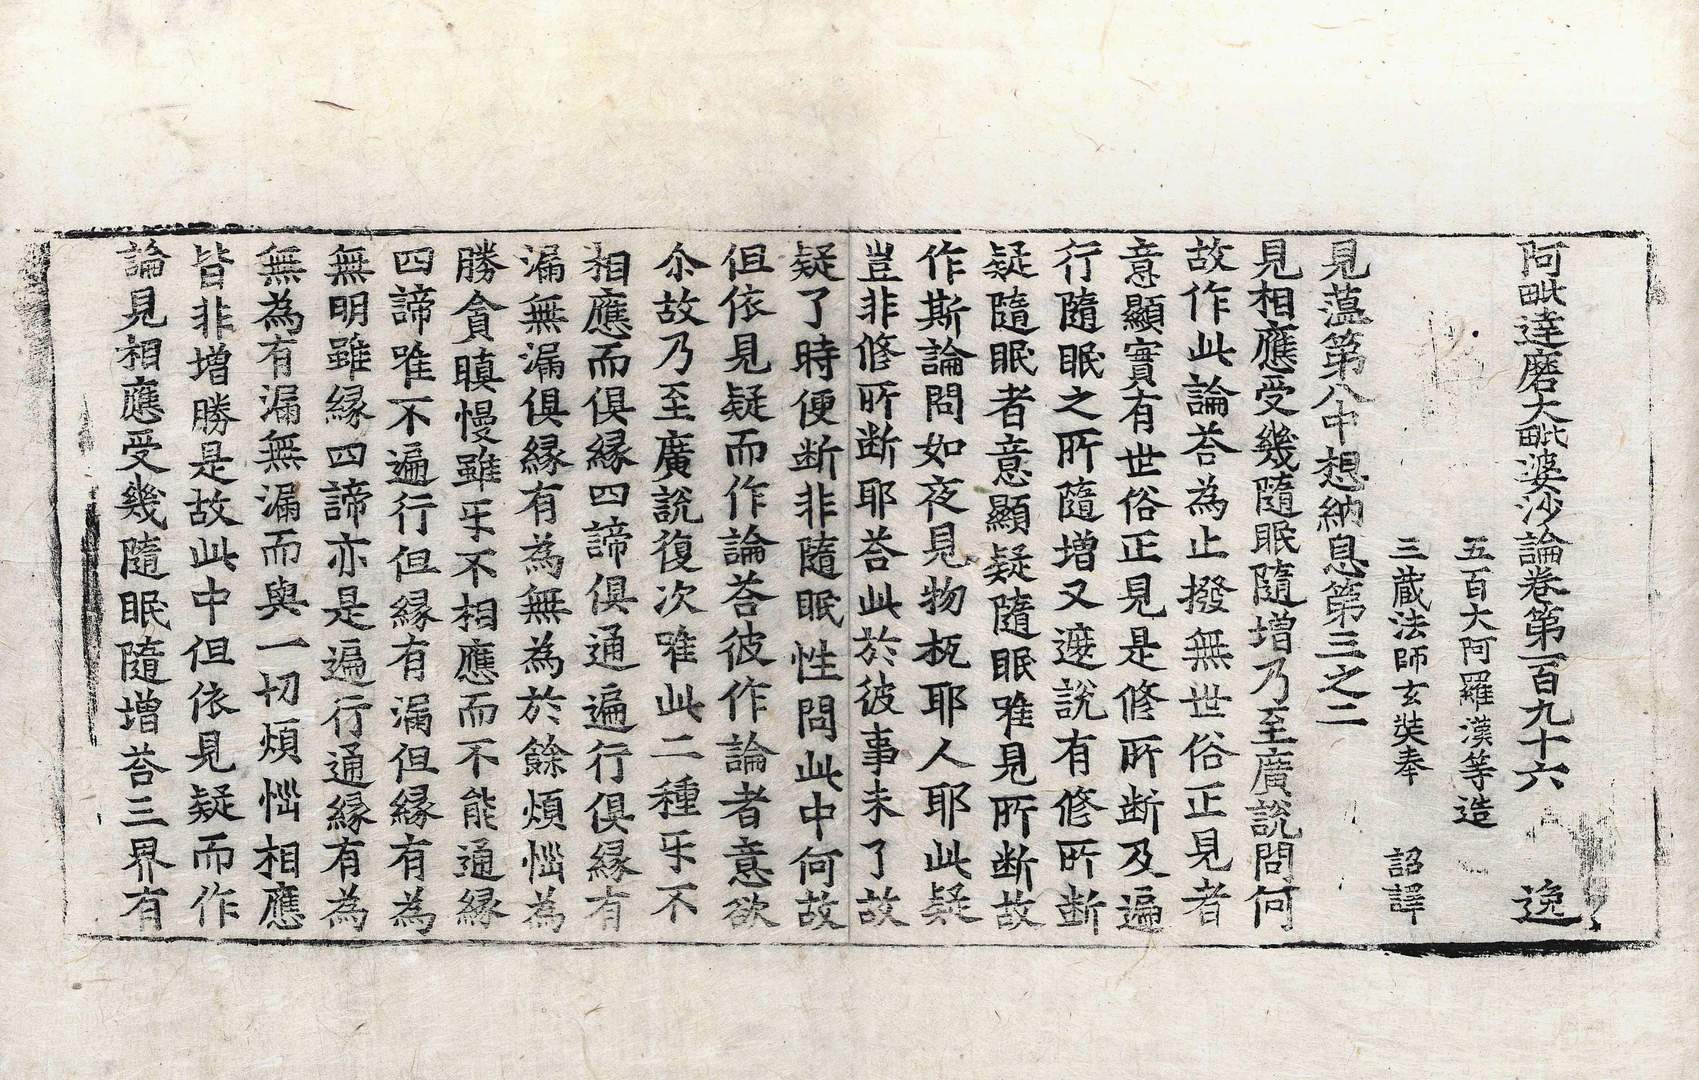 阿毗達磨大毗婆沙論卷第一百九十六　逸
五百大阿羅漢等造
三藏法師玄奘奉　詔譯
見蘊第八中想納息第三之二
見相應受幾隨眠隨增乃至廣說問何
故作此論荅為止撥無世俗正見者
意顯實有世俗正見是修所断及遍
行隨眠之所隨增又遮說有修所断
疑隨眠者意顯疑隨眠唯見所断故
作斯論問如夜見物杌耶人耶此疑
豈非修所断耶荅此於彼事未了故
疑了時便断非隨眠性問此中何故
但依見疑而作論荅彼作論者意欲
尒故乃至廣說復次唯此二種㸦不
相應而俱緣四諦俱通遍行俱緣有
漏無漏俱緣有為無為於餘煩惱為
勝貪瞋慢雖㸦不相應而不能通緣
四諦唯不遍行但緣有漏但緣有為
無明雖緣四諦亦是遍行通緣有為
無為有漏無漏而與一切煩惱相應
皆非增勝是故此中但依見疑而作
論見相應受幾隨眠隨增荅三界有